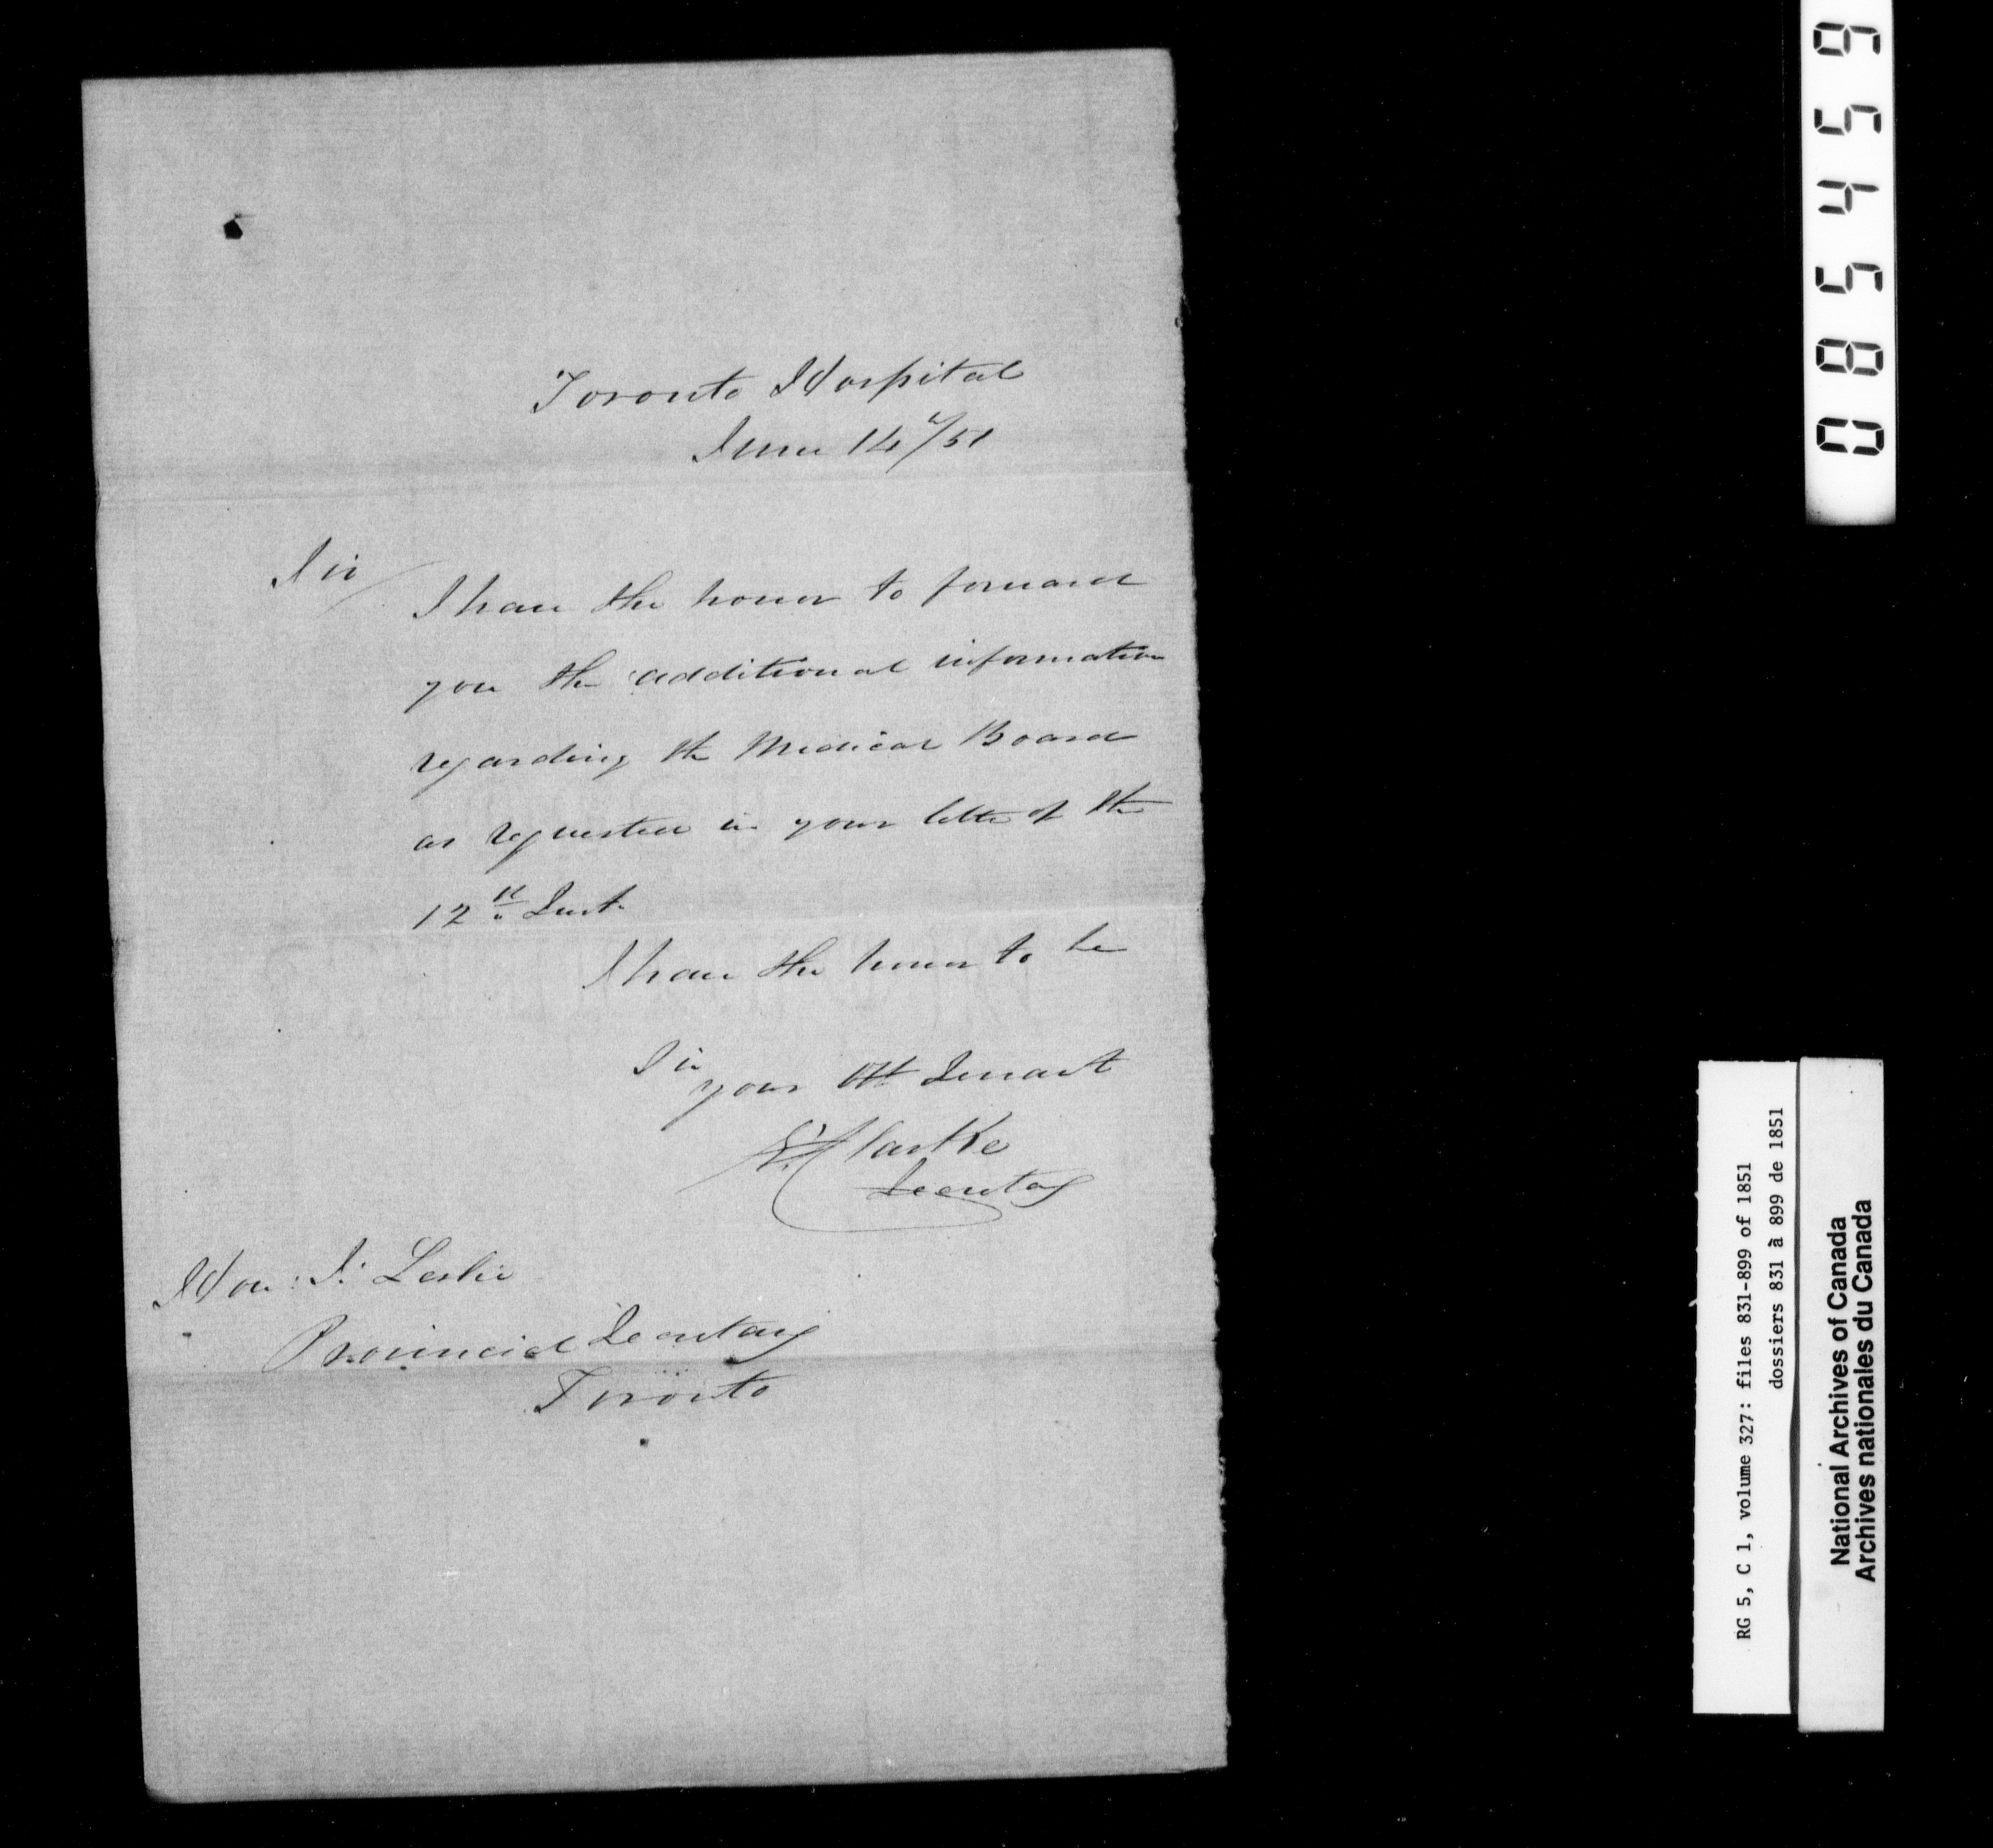 Toronto Hospital
June 14/51
Sir
I have the honor to forward
you the additional information
regarding the Medical Board
as requested in your letter of the
12th Inst.
I have the honor to be
Sir
your Obt Servant
Clarke
Secretary
Hon: J. Leslie
Provincial Secretary
Toronto
085459
RG 5, C 1, volume 327: files 831-899 of 1851
dossiers 831 à 899 de 1851
National Archives of Canada
Archives nationales du Canada